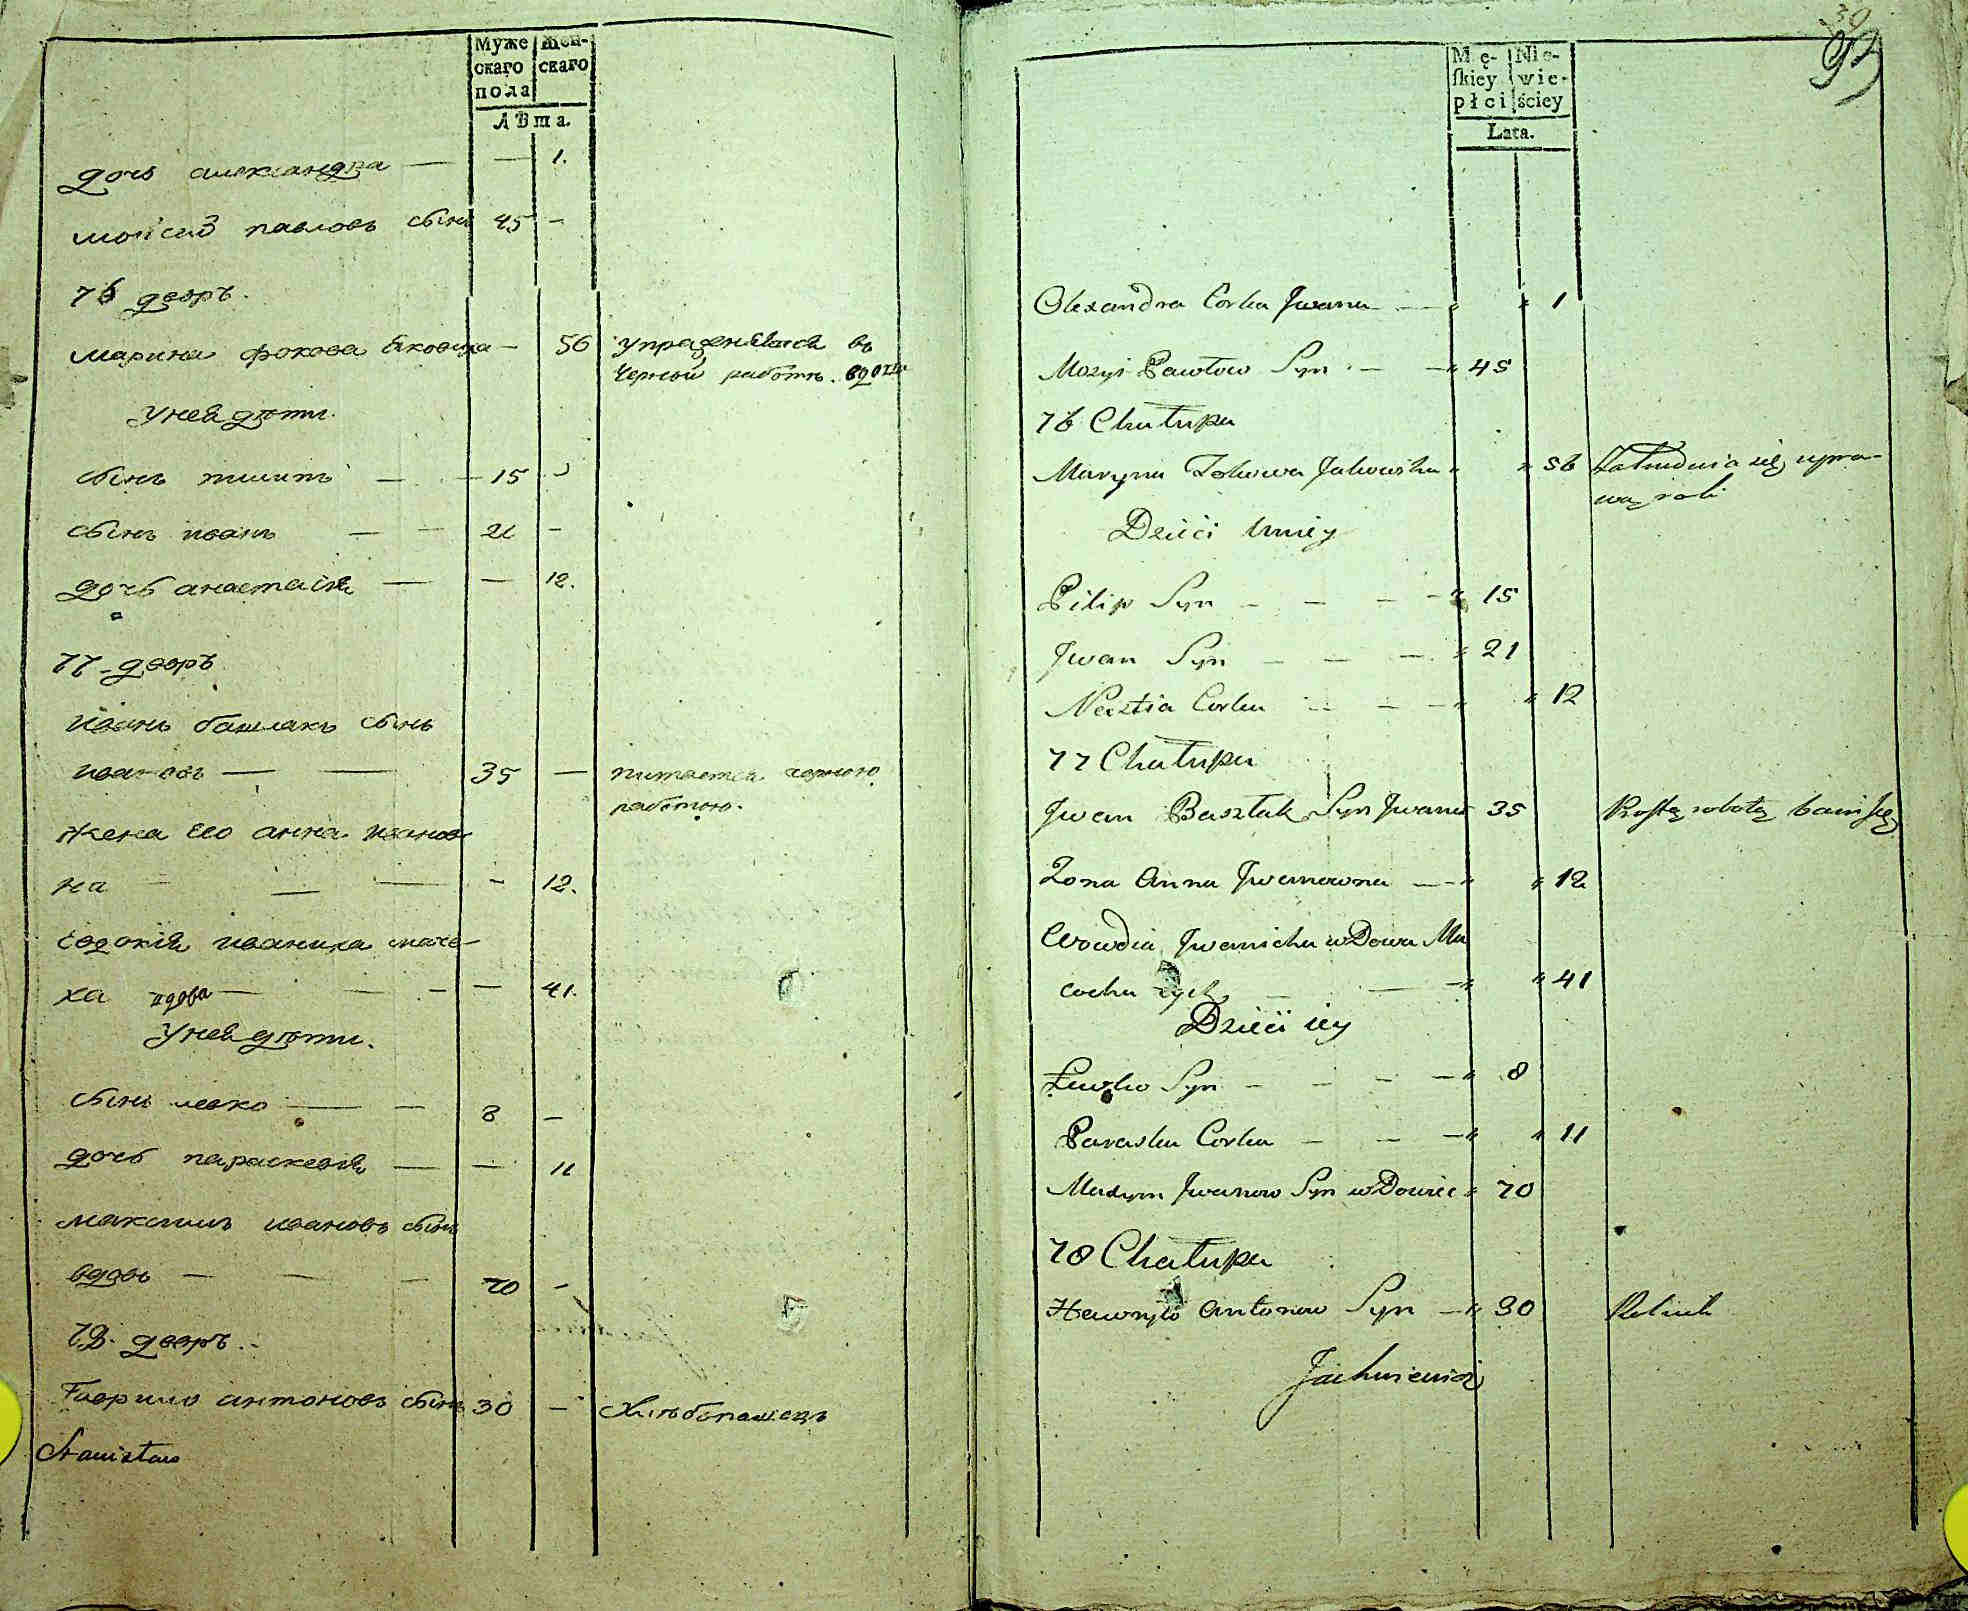 Муже Жен-
скаго скаго
пола
Лѣта.
дочь александра — — 1.
моисей павловъ сынъ 45 —
76 дворъ.
марина фокова яковиха — 56 упражняется въ
черной работѣ. вдова
У нея дѣти.
сынъ пилипъ — — 15 —
сынъ иванъ — — 21 —
дочь анастасія — — 12.
77 дворъ
иванъ башлакъ сынъ
ивановъ — — 35 — питается чорною
работою.
жена его анна иванов-
на — — — — 12.
Евдокія иваниха маче-
ха вдова — — — — 41.
У нея дѣти.
сынъ левко — — 8 —
дочь параскевія — — 11
максимъ ивановъ сынъ
вдовъ — — — 70 —
78. дворъ.
Гаврило антоновъ сынъ 30 — Хлѣбопашецъ
Stanisław
39
92
Mę- Nie-
skiey wie-
płci ściey
Lata.
Olexandra Corka Jwana — " " 1
Mozyi Pawłow Syn — — " 45
76 Chałupa
Maryna Fokowa Jakowicha " " 56 Zatrudnia się upra-
wą roli
Dzieci Umiey
Pilip Syn — — — " 15
Jwan Syn — — — " 21
Nasztia Corka — — — " " 12
77 Chałupa
Jwan Baszlak Syn Jwanow 35 Prostą robotą bawi się
Żona Anna Jwanowna — — " " 12
Owdia Jwanicha wDowa Ma
cocha — — " " 41
Dzieci iey
Lewko Syn — — — " 8
Paraska Corka — — — " " 11
Maxym Jwanow Syn wDowiec " 70
78 Chałupa
Hawryło Antonow Syn — " 30 Rolnik
Jachniewicz